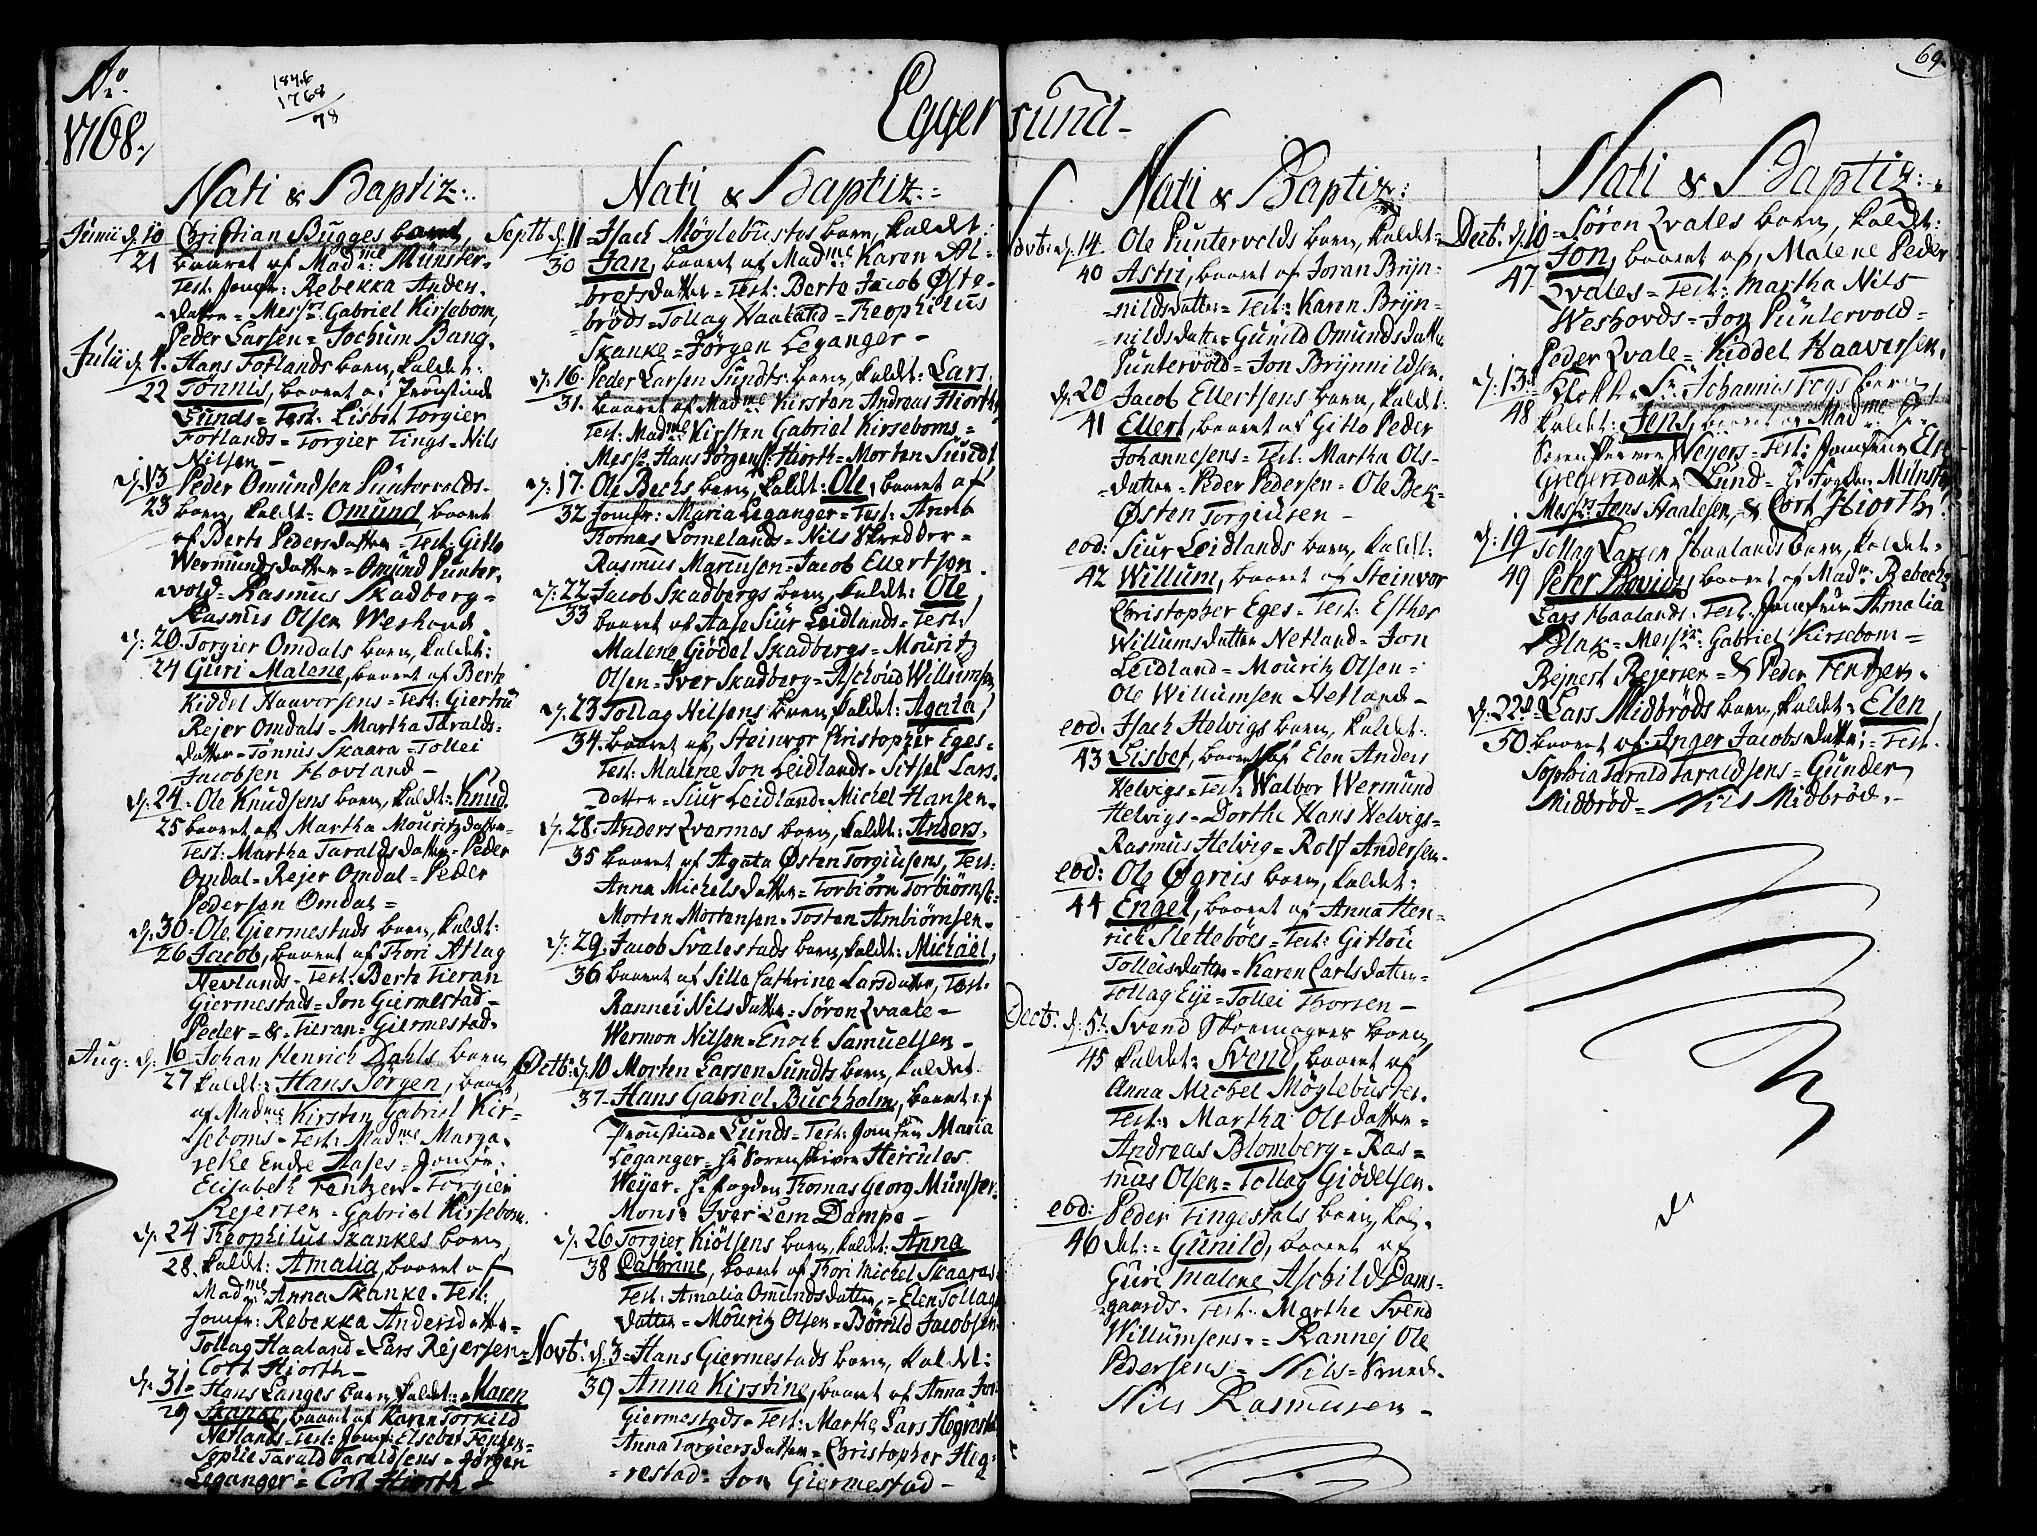 Aº
1768.
1846
1768
78
Eggersund
69
Nati & Baptiz:
Junii d. 10 Christian Bugges barn,
21 baaret af Madme Münster
Test: Jomfr: Rebekka Anders
datter = Messr. Gabriel Kirsebom,
Peder Larsen = Jochum Bang.
Julii d. 1. Hans Fotlands barn, kaldet:
22 Tönnis, baaret af Provstinde
Lunds = Test: Lisbet Torgier
Fotlands = Torgier Tings = Nils
Nilsen
d. 13 Peder Omundsen Püntervolds
23 barn, kaldt: Omund, baaret
af Berte Pedersdatter = Test: Gitlo
Wermundsdatter = Omünd Punter
vold = Rasmus Skadberg =
Rasmus Olsen Weshovd
d. 20 Torgier Omdals barn, kaldet:
24 Guri Malene, baaret af Berte
Kiddel Haaversens = Test: Giertru
Rejer Omdals = Martha Taralds
datter = Tönnis Skaara = Tollei
Jacobsen Hovland
d. 24 Ole Knudsens barn, kaldt: Knud,
25 baaret af Martha Mouritzdatter
Test: Martha Taraldsdatter = Peder
Omdal = Rejer Omdal = Peder
Pedersen Omdal =
d. 30 Ole Giermestads barn, kaldt:
26 Jacob, baaret af Thori Atlag
Hevlands = Test: Berte Tieran
Giermestads = Jon Giermestad
Peder = & Tieran = Giermestad.
Aug: d. 16 Johan Henrich Dahls barn
27 kaldt: Hans Jörgen, baaret
af Madme Kirsten Gabriel Kir-
seboms = Test: Madme Marga
rethe Endre Aases = Jomfr.
Elisabeth Fentzen = Torgier
Rejersen = Gabriel Kirsebom.
d. 24 Theophilus Skankes barn
28. kaldt: Amalia, baaret af
Madme Anna Skanke = Test:
Jomfr: Rebekka Andersdatter =
Tollag Haaland = Lars Rejersen
Cort Hiorth
d. 31 Hans Langes barn, kaldet: Karen
29 Skanke, baaret af Karen Torkild
Netlands = Test: Jomfr: Elsebet Fentzen =
Sophie Tarald Taraldsens = Jörgen
Leganger = Cort Hiorth
Nati & Baptiz:
Septb d. 11 Isach Möglebustes barn, kaldet:
30 Jan, baaret af Madme Karen Al-
bretsdatter = Test: Berte Jacob Öste-
bröds = Tollag Haaland = Theophilus
Skanke = Jörgen Leganger
d. 16 Peder Larsen Sundts barn, kaldet: Lars
31. baaret af Madme Kirsten Andreas Hiorths
Test: Madme Kirsten Gabriel Kirseboms =
Messr. Hans Jörgens: Hiorth = Morten Sundt
d. 17 Ole Bechs barn, kaldt: Ole, baaret af
32 Jomfr: Maria Leganger = Test: Anne
Tomas Lomelands = Nils Skredder =
Rasmus Marcusen = Jacob Ellertsen.
d. 22 Jacob Skadbergs barn, kaldet: Ole,
33 baaret af Aase Siur Leidlands = Test:
Malene Giödel Skadbergs = Mouritz
Olsen = Iver Skadberg = Aschoud Willumsen
d. 23 Tollag Nilsens barn, kaldet: Agata,
34. baaret af Steinvor Christopher Eges =
Test: Malene Jon Leidlands = Sitsel Lars
datter = Siur Leidland = Michel Hansen.
d. 28 Anders Qvarmes barn, kaldt: Anders,
35 baaret af Agata Østen Torgiusens, Test:
Anna Michelsdatter = Torbiörn Torbiörnse:
Morten Mortensen = Tosten Ambiörnsen.
d. 29 Jacob Svalestads barn, kaldet: Michael,
36 baaret af Sille Cathrine Larsdatter, Test:
Rannei Nilsdatter = Sören Qvaale =
Wermon Nilsen = Enoch Samuelsen
Octb: d. 10 Morten Larsen Sundts barn, kaldet
37 Hans Gabriel Buchholm, baaret af
Provstinde Lunds = Test: Jomfru Maria
Leganger = Hr. Sorenskriver Hercules
Weyer = Hr. Fogden Thomas Georg Münster
Monsr Iver Lem Dampe
d. 26 Torgier Kiölsens barn, kaldet: Anna
38 Cathrine, baaret af Thori Michel Skaaras
Test: Amalia Omundsdatter = Elen Tollags
datter = Mouritz Olsen = Børrild Jacobsen
Novb: d. 3 Hans Giermestads barn, kaldet:
39 Anna Kirstine, baaret af Anna Jon
Giermestads = Test: Marthe Lars Hegrestad
Anna Torgiersdatter = Christopher Heg-
restad = Jon Giermestad
Nati & Baptiz:
Novb: d. 14. Ole Puntervolds barn, kaldet
40 Astri, baaret af Joran Bryn-
nildsdatter = Test: Karen Bryn-
nildsdatter = Gunild Omundsdatter
Puntervold = Jon Brynnildsen.
d. 20 Jacob Ellertsens barn, kaldet:
41 Ellert, baaret af Gitlo Peder
Johannesens = Test: Martha Ols-
datter = Peder Pedersen = Ole Bek
Østen Torgiusen
eod: Siur Leidlands barn, kaldt:
42 Willum, baaret af Steinvor
Christopher Eges = Test: Esther
Willumsdatter Netland = Jon
Leidland = Mouritz Olsen =
Ole Willumsen Hetland
eod: Isach Helvigs barn, kaldet:
43 Lisbet, baaret af Elen Anders
Helvigs = Test: Walbor Wermund
Helvigs = Dorthe Hans Helvigs =
Rasmus Helvig = Rolf Andersen.
eod: Ole Øgreis barn, kaldet:
44 Engel, baaret af Anna Hen-
rich Sletteböes = Test: Gitlou
Tolleisdatter = Karen Carlsdatter
Tollag Eije = Tollei Thorsen
Decb. d. 5t. Svend Skoemagers barn
45 kaldet: Svend, baaret af
Anna Michel Möglebustes.
Test: Martha Olsdatter =
Andreas Blomberg = Ras=
mus Olsen = Tollag Giödelsen.
eod: Peder Tingestals barn, kal
46 det: Gunild, baaret af
Guri Malene Aschild Dams-
gaards. Test: Marthe Svend
Willumsens = Rannej Ole
Pedersens = Nils Svends
Nils Rasmusen
Nati & Baptiz:
Decb. d. 10 Sören Qvales barn, kaldet:
47 Jon, baaret af Malene Peder
Qvales = Test: Martha Nils
Weshovds = Jon Püntervold =
Peder Qvale = Kiddel Haaversen.
d. 13 Klokk. Sr. Johannis Fogs barn
48 kaldet: Jens, baaret af Madme
Sorenskriver Weyers = Test: Jomfrue Else
Gregersdatter Lund = Hr. Fogden Münster
Messr. Jens Haalesen, & Cort Hiorth
d. 19 Tollag Larsen Haalands barn, kaldet
49 Peter Bovitz, baaret af Madm. Rebecha
Lars Haalands = Test. Jomfrue Amalia
Blak = Messr: Gabriel Kirsebom =
Rejnert Rejersen = & Peder Fentzen.
d. 22 Lars Midbröds barn, kaldet: Elen
50. baaret af Inger Jacobsdatter = Test
Sophia Tarald Taraldsens = Gunder
Midbröd = Nils Midbröd.